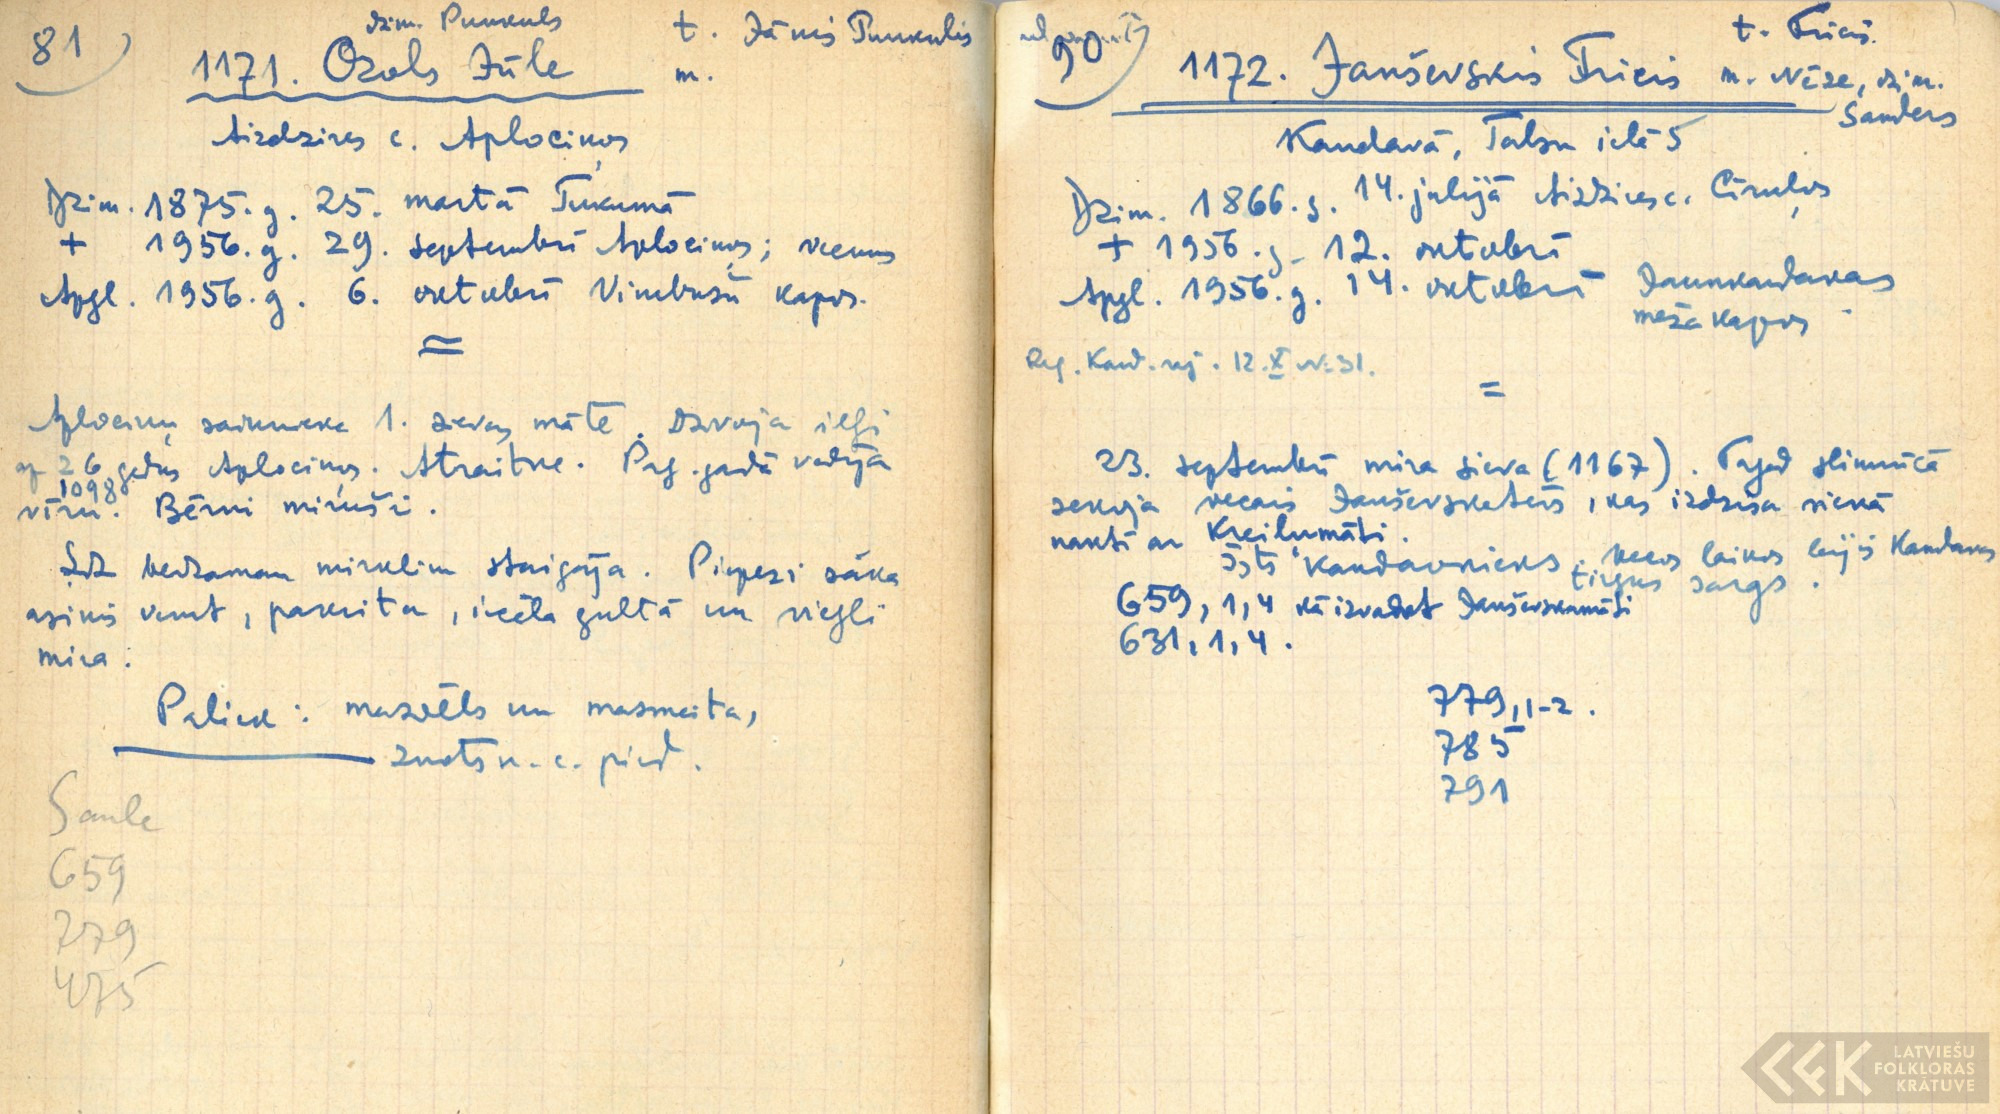 81)
dzim. Punkuls
t. Jānis Punkulis
m.
1171. Ozols Jūle
Aizdzires c. Aplociņos
Dzim. 1875. g. 25. martā Tukumā
+ 1956. g. 29. septembrī Aplociņos; vecums
Apgl. 1956. g. 6. oktobrī Vimbušu kapos.
=
Aplociņu saimnieka 1. sievas māte. Dzīvoja ilgi
ap 26 gadus Aplociņos. Atraitne. Pag. gadā vadīja
1098
vīru. Bērni miruši.
Līdz bedzamam mirklim staigāja. Piepeši sāka
asinis vemt, pakrita, iecēla gultā un viegli
mira.
Paliek: mazdēls un mazmeita,
znots u. c. pied.
Saule
659
779
475
90)
1172. Janševskis Fricis
t. Fricis.
m. Nēze, dzim.
Sanders
Kandavā, Talsu ielā 5
Dzim. 1866. g. 14. julijā Aizdzires c. Cīruļos
+ 1956. g. 12. oktobrī
Apgl. 1956. g. 14. oktobrī Jaunkandavas
meža kapos.
Reg. Kand. 12. X № 31.
=
23. septembrī mira sieva (1167). Tagad slimnīcā
sekoja vecais Janševskatēvs, kas izdzisa vienā
naktī ar Kreilumāti.
Īsts kandavnieks. Vecos laikos bijis Kandavas
tirgus sargs.
659, 1, 4 kā izvadot Janševskamāti
631, 1, 4.
779, 1-2.
785
791
LATVIEŠU
FOLKLORAS
KRĀTUVE